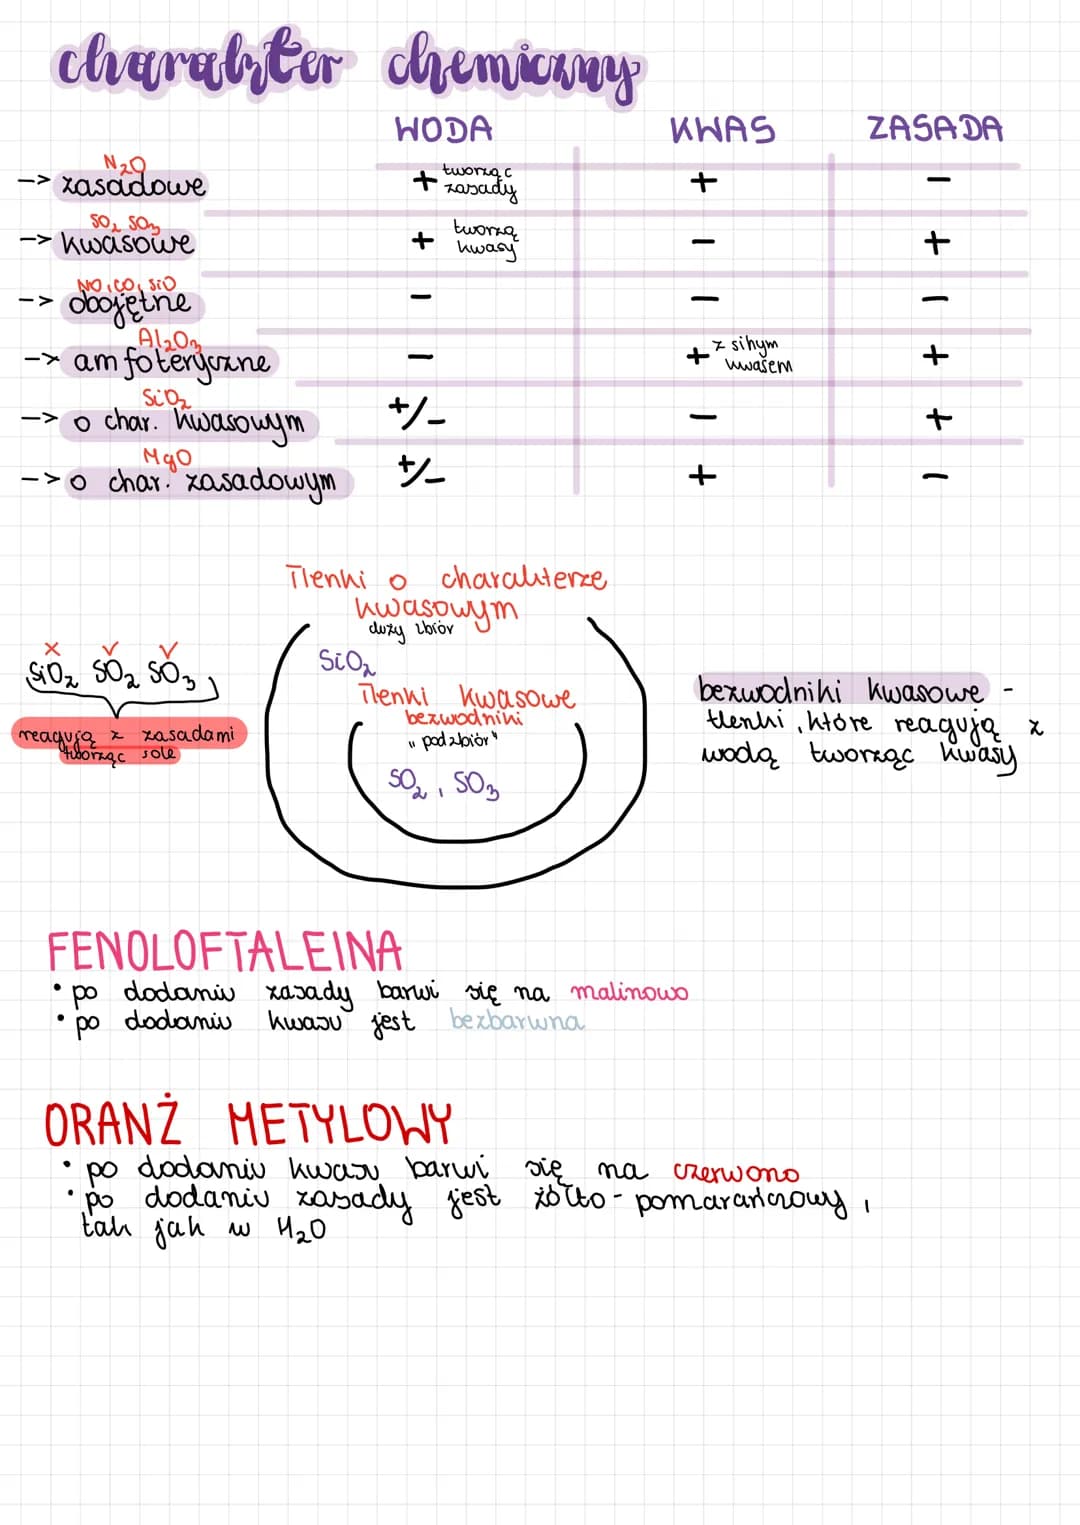 charakter chemiczny
WODA KWAS ZASADA
N₂O
-> zasadowe + tworząc zasady + -
SO₂ SO₃
-> kwasowe + tworzą kwasy - +
NO, CO, SiO
-> obojętne - - -
Al₂O₃
-> amfoteryczne - + z silnym kwasem +
SiO₂
-> o char. kwasowym +/- - +
MgO
-> o char. zasadowym +/- + -
Tlenki o charakterze
kwasowym
duży zbiór
x ✓ ✓
SiO₂ SO₂ SO₃
reagują z zasadami
tworząc sole
SiO₂
Tlenki kwasowe
bezwodniki
"podzbiór"
SO₂, SO₃
bezwodniki kwasowe -
tlenki, które reagują z
wodą tworząc kwasy
FENOLOFTALEINA
• po dodaniu zasady barwi się na malinowo
• po dodaniu kwasu jest bezbarwna
ORANŻ METYLOWY
• po dodaniu kwasu barwi się na czerwono
• po dodaniu zasady jest żółto-pomarańczowy,
tak jak w H₂O